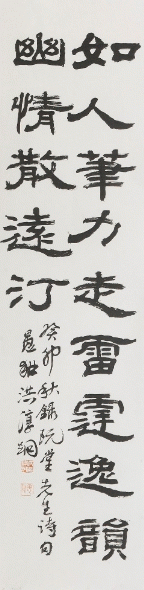 如人筆力走雷霆逸韻
幽情散遠汀
癸卯秋錄阮堂先生詩句
愚軸洪淳網